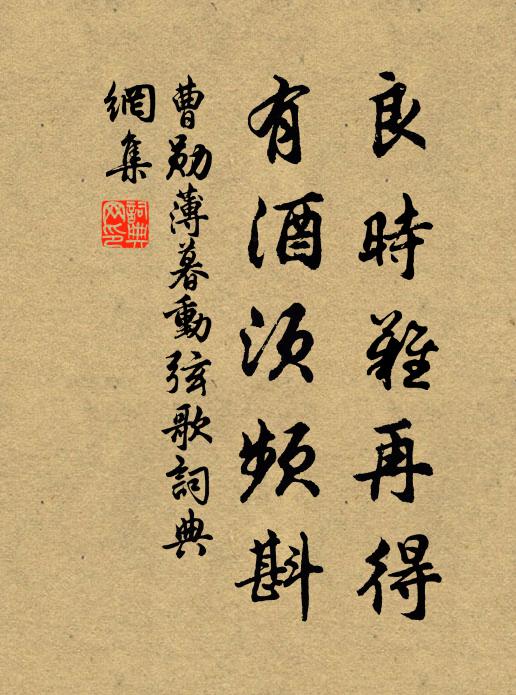 良時難再得
有酒須頻斟
曹勛薄暮動弦歌詞典
網集
詞典
网印